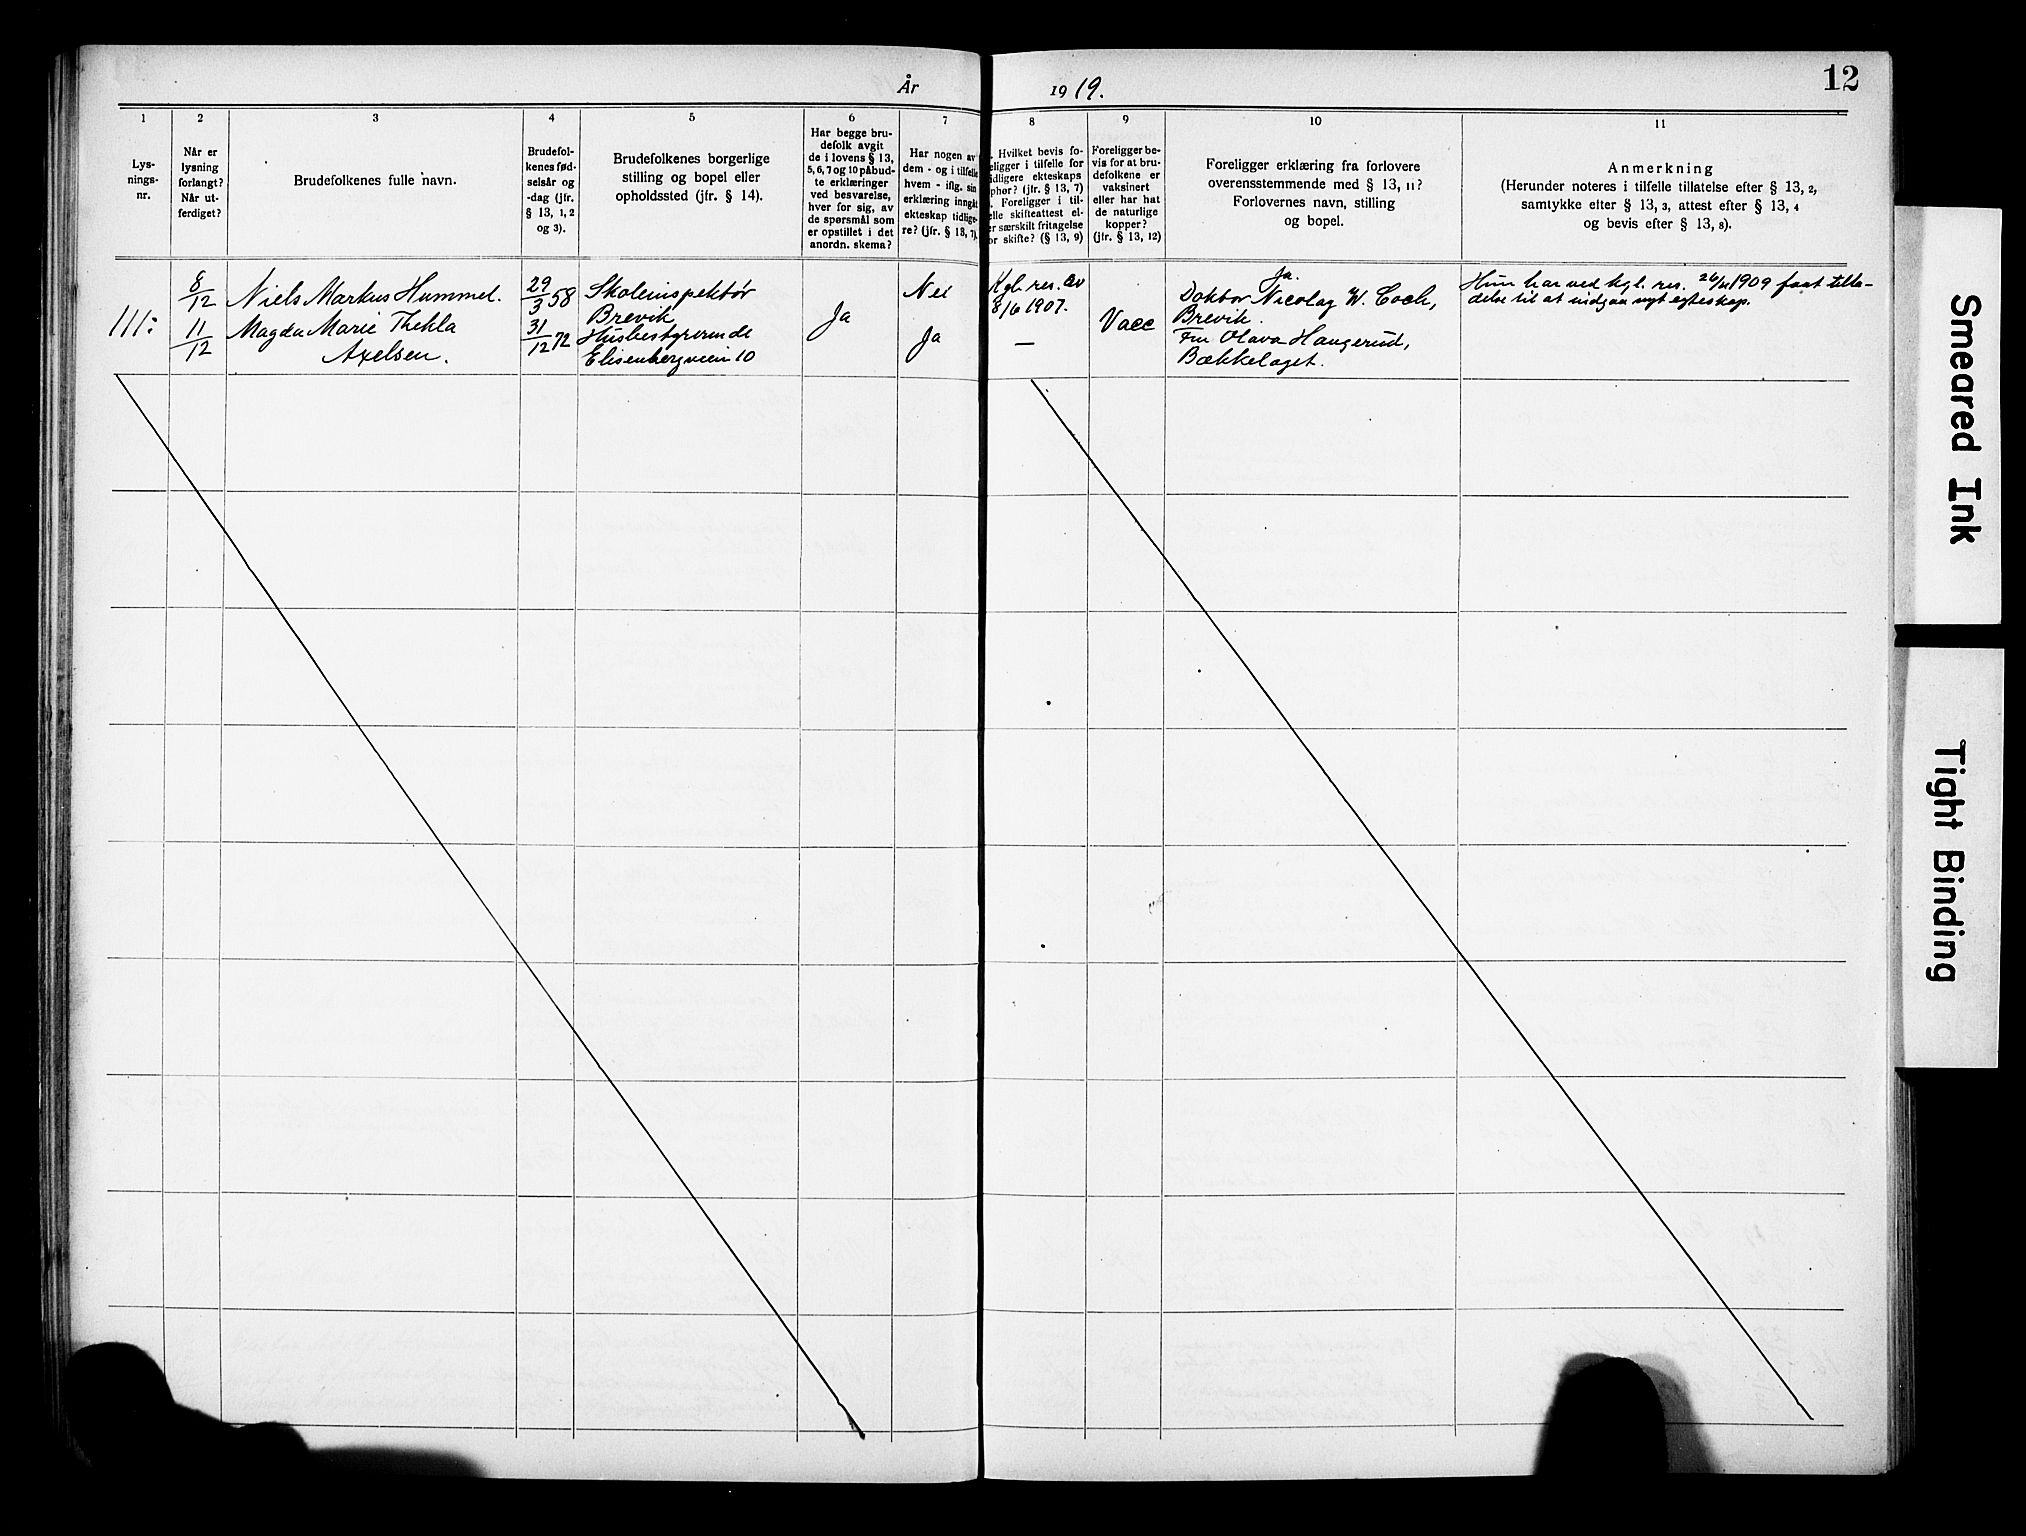 År 1919.
12
1
Lys-
nings-
nr.
2
Når er
lysning
forlangt?
Når ut-
ferdiget?
3
Brudefolkenes fulle navn.
4
Brudefol-
kenes fød-
selsår og
-dag (jfr.
§ 13, 1, 2
og 3).
5
Brudefolkenes borgerlige
stilling og bopel eller
opholdssted (jfr. § 14).
6
Har begge bru-
defolk avgit
de i lovens § 13,
5, 6, 7 og 10 påbud-
te erklæringer
ved besvarelse,
hver for sig, av
de spørsmål som
er opstillet i det
anordn. skema?
7
Har nogen av
dem - og i tilfelle
hvem - iflg. sin
erklæring inngåt
ekteskap tidlige-
re? (jfr. § 13, 7).
8
Hvilket bevis fo-
eligger i tilfelle for
idligere ekteskaps
phør? (jfr. § 13, 7)
Foreligger i til-
elle skifteattest el-
er særskilt fritagelse
or skifte? (§ 13, 9)
9
Foreligger be-
vis for at bru-
defolkene er
vaksinert
eller har hat
de naturlige
kopper?
(jfr. § 13, 12)
10
Foreligger erklæring fra forlovere
overensstemmende med § 13, 11?
Forlovernes navn, stilling
og bopel.
11
Anmerkning
(Herunder noteres i tilfelle tillatelse efter § 13, 2,
samtykke efter § 13, 3, attest efter § 13, 4
og bevis efter § 13, 8).
111:
8/12
11/12
Niels Markus Hummel.
Magda Marie Thekla
Axelsen.
29/3 58
31/12 72
Skoleinspektør
Brevik
Husbestyrerinde
Elisenbergveien 10
Ja
Nei
Ja
Kgl. res. av
8/6 1907.
—
Vacc
Ja.
Doktor Nicolay W. Coch,
Brevik.
Fru Olava Haugerud,
Bækkelaget.
Hun har ved kgl. res. 1909 faat tilla-
delse til at indgaa nyt egteskap.
Smeared Ink
Tight Binding